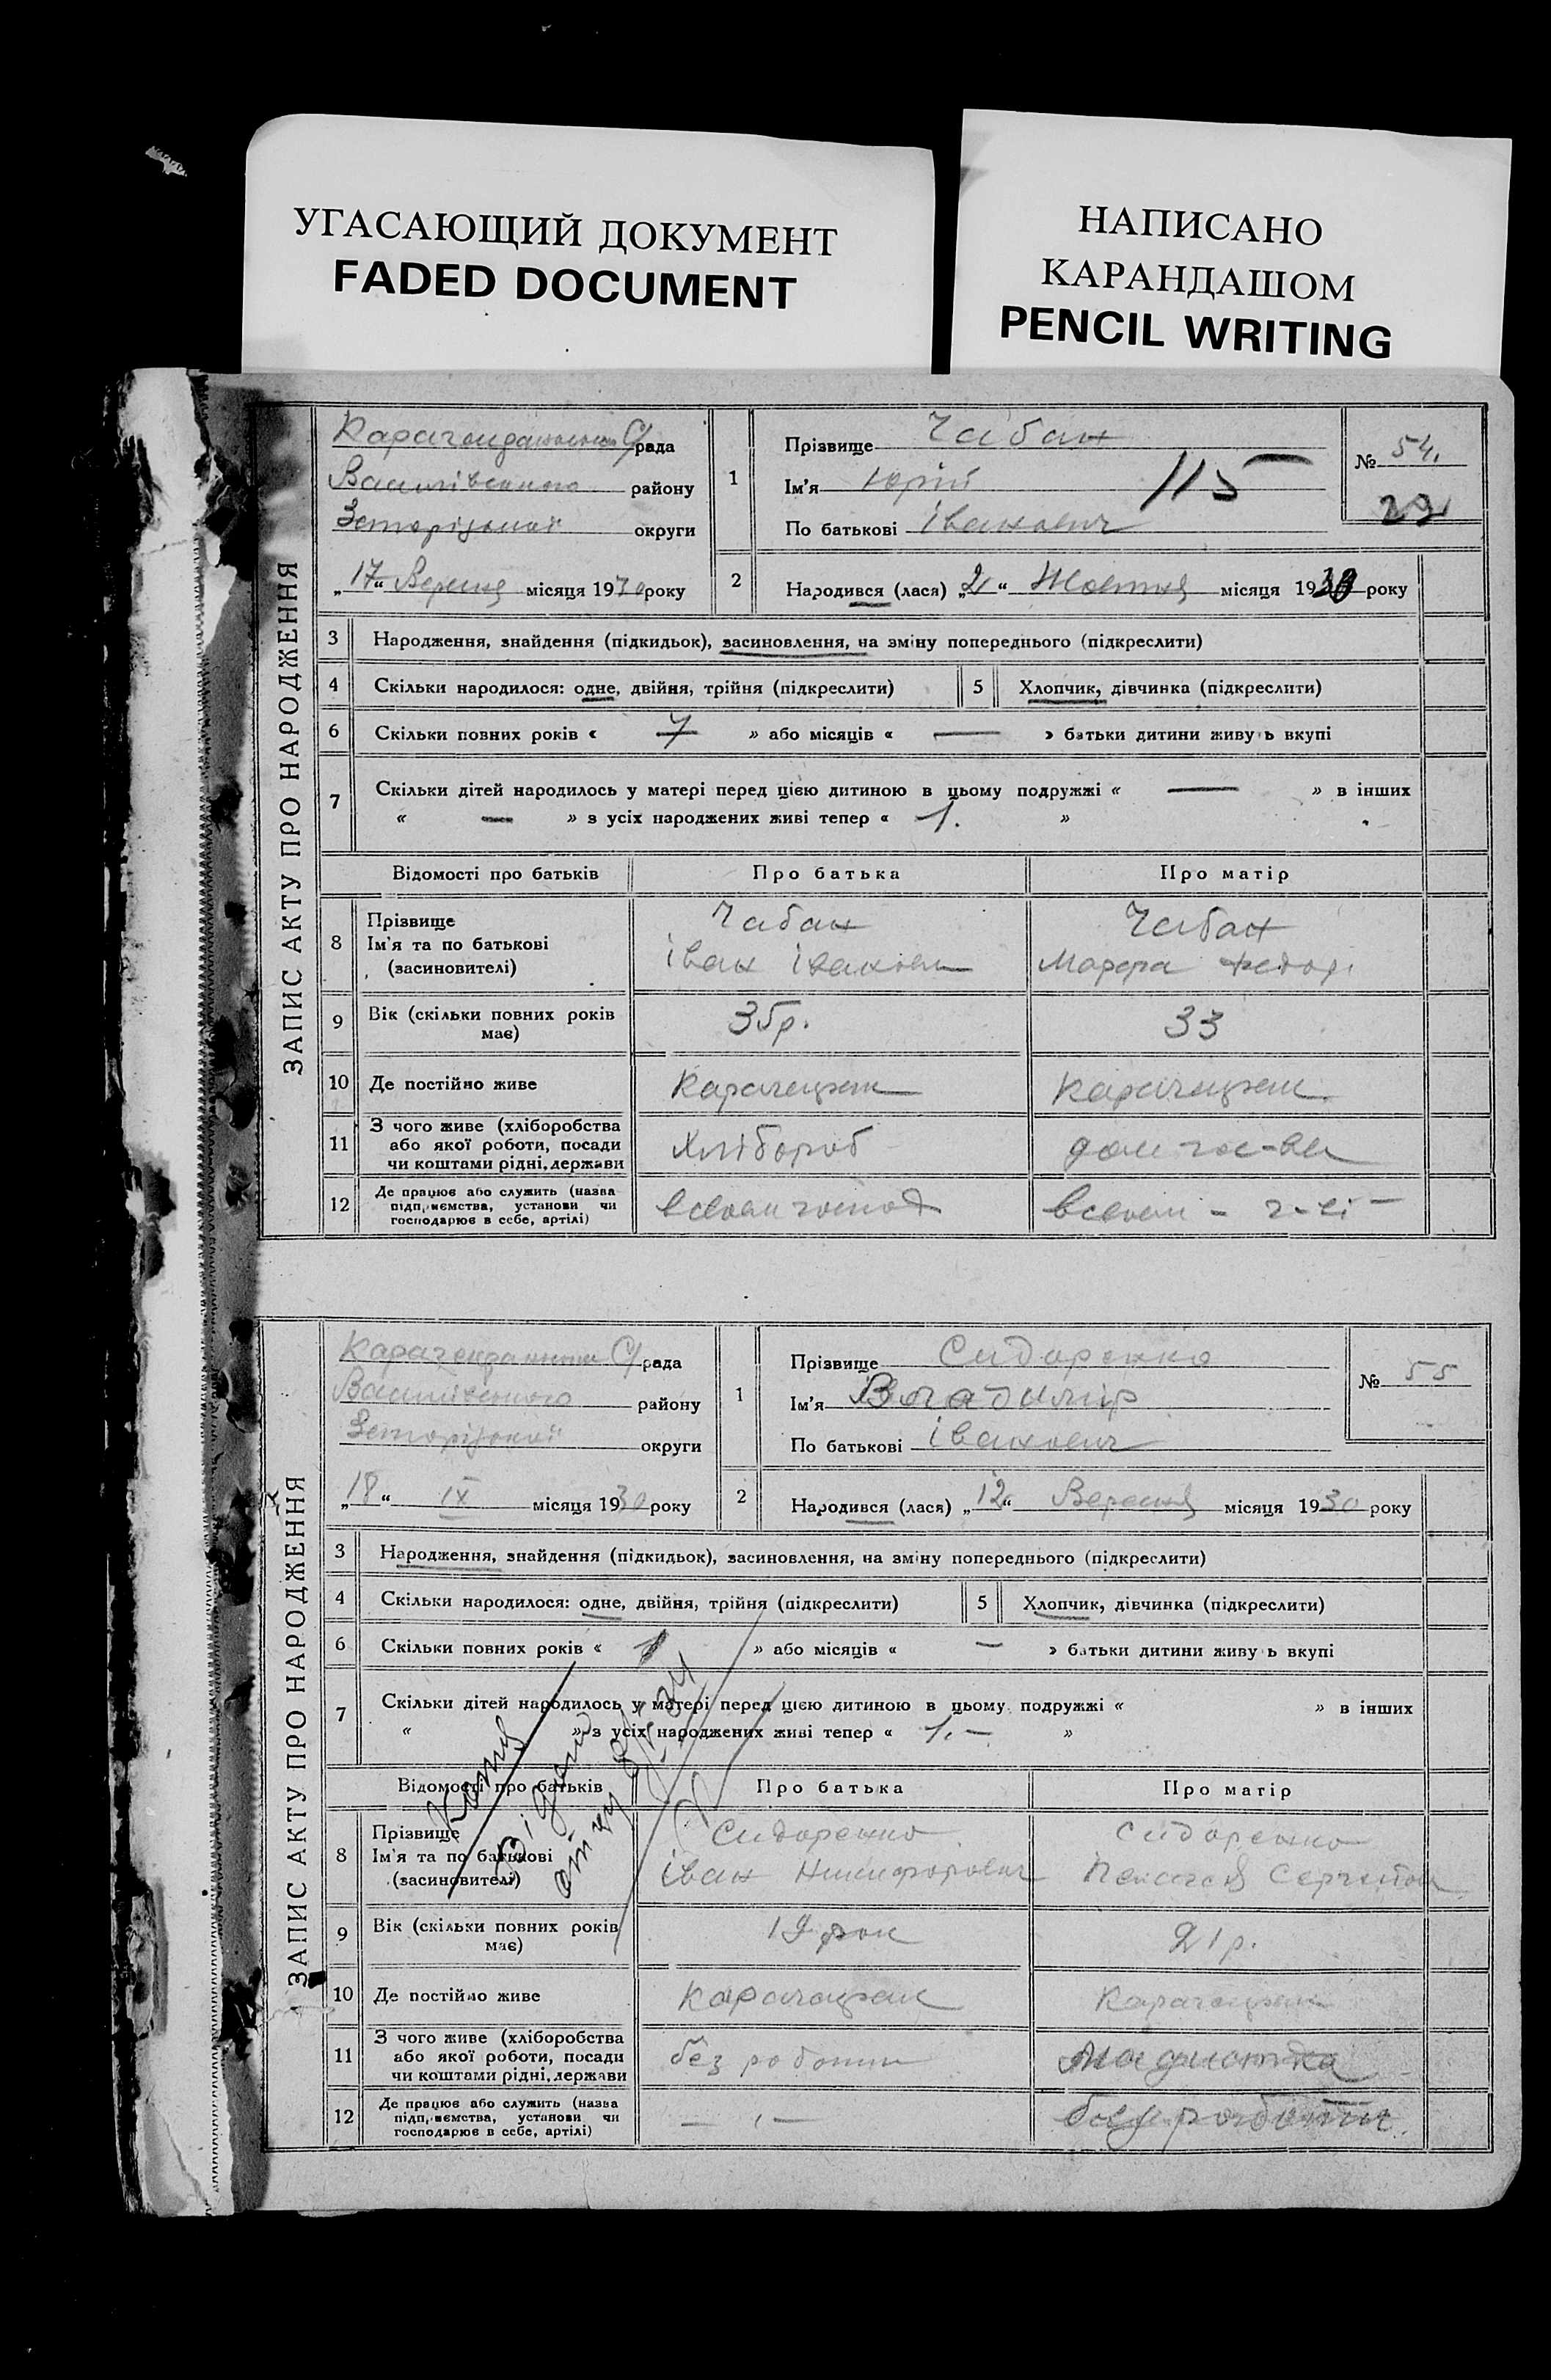 УГАСАЮЩИЙ ДОКУМЕНТ
FADED DOCUMENT
НАПИСАНО
КАРАНДАШОМ
PENCIL WRITING
ЗАПИС АКТУ ПРО НАРОДЖЕННЯ
С/рада
Василівського району
Запорізької округи
„17“ Вересня місяця 1930 року
1
Прізвище Чабан
Ім'я Юрій
115
По батькові Іванович
№ 54.
29
2
Народився (лася) „2“ Жовтня місяця 19 року
3 Народження, знайдення (підкидьок), засиновлення, на зміну попереднього (підкреслити)
4 Скільки народилося: одне, двійня, трійня (підкреслити)
5 Хлопчик, дівчинка (підкреслити)
6 Скільки повних років « 7 » або місяців « — » батьки дитини живуть вкупі
7 Скільки дітей народилось у матері перед цією дитиною в цьому подружжі « — » в інших
« — » з усіх народжених живі тепер « 1. »
Відомості про батьків Про батька Про матір
8 Прізвище
Ім'я та по батькові
(засиновителі)
Чабан
Іван Іванович
Чабан
Марфа Федор.
9 Вік (скільки повних років має)
35р.
33
10 Де постійно живе
11 З чого живе (хліборобства
або якої роботи, посади
чи коштами рідні, держави
Хлібороб
дом гос-ва
12 Де працює або служить (назва
підприємства, установи чи
господарює в себе, артілі)
в своем господ
в своем
ЗАПИС АКТУ ПРО НАРОДЖЕННЯ
С/рада
Василівського району
Запорізької округи
„18“ IX місяця 1930 року
1
Прізвище Сидоренко
Ім'я Владимір
По батькові Іванович
№ 55
2
Народився (лася) „12“ Вересня місяця 1930 року
3 Народження, знайдення (підкидьок), засиновлення, на зміну попереднього (підкреслити)
4 Скільки народилося: одне, двійня, трійня (підкреслити)
5 Хлопчик, дівчинка (підкреслити)
6 Скільки повних років « 1 » або місяців « — » батьки дитини живуть вкупі
7 Скільки дітей народилось у матері перед цією дитиною в цьому подружжі « » в інших
« » з усіх народжених живі тепер « 1. — »
Відомості про батьків Про батька Про матір
8 Прізвище
Ім'я та по батькові
(засиновителі)
Сидоренко
Іван Никифорович
Сидоренко
9 Вік (скільки повних років має)
19 рок
21 р.
10 Де постійно живе
11 З чого живе (хліборобства
або якої роботи, посади
чи коштами рідні, держави
без роботи
12 Де працює або служить (назва
підприємства, установи чи
господарює в себе, артілі)
роботи